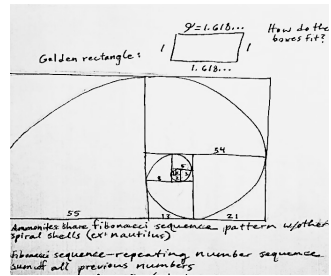 φ=1.618...
How do the
boxes fit?
Golden rectangle:
1
1
1.618...
54
5
8
55
13
21
Ammonites share fibonacci sequence pattern w/other
spiral shells (ex: nautilus)
Fibonacci sequence - repeating number sequence
sum of all previous numbers